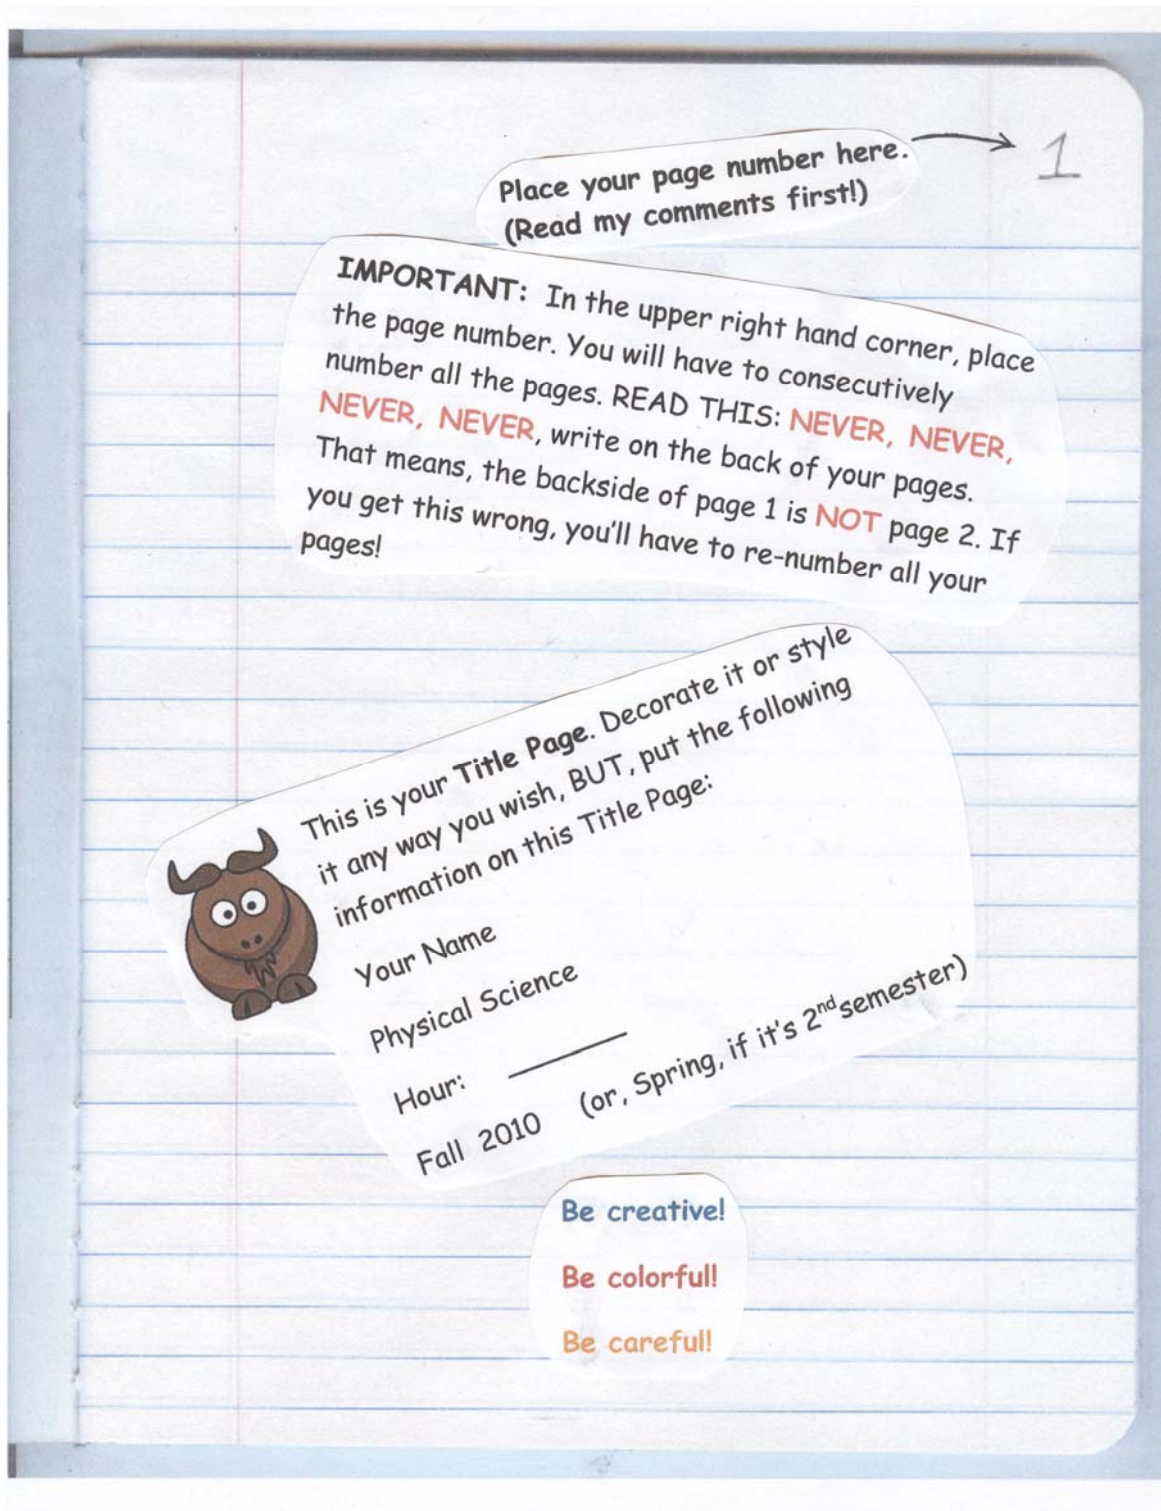 Place your page number here.
(Read my comments first!)
1
IMPORTANT: In the upper right hand corner, place
the page number. You will have to consecutively
number all the pages. READ THIS: NEVER, NEVER,
NEVER, NEVER, write on the back of your pages.
That means, the backside of page 1 is NOT page 2. If
you get this wrong, you'll have to re-number all your
pages!
This is your Title Page. Decorate it or style
it any way you wish, BUT, put the following
information on this Title Page:
Your Name
Physical Science
Hour: ________
Fall 2010 (or, Spring, if it's 2nd semester)
Be creative!
Be colorful!
Be careful!